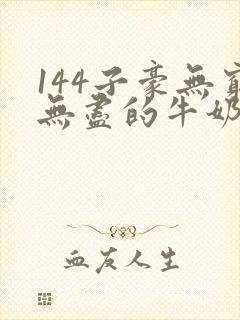 144子豪無窮
無盡的牛奶
血友人生